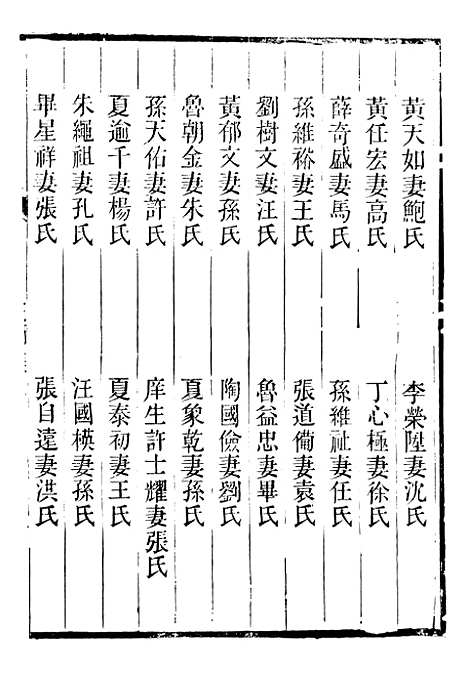 黃天如妻鮑氏
李榮陞妻沈氏
黃任宏妻高氏
丁心極妻徐氏
薛奇盛妻馬氏
孫維祉妻任氏
孫維裕妻王氏
張道衞妻袁氏
劉樹文妻汪氏
魯益忠妻畢氏
黃郁文妻孫氏
陶國儉妻劉氏
魯朝金妻朱氏
夏象乾妻孫氏
孫天佑妻許氏
庠生許士耀妻張氏
夏逾千妻楊氏
夏泰初妻王氏
朱繩祖妻孔氏
汪國楧妻孫氏
畢星祥妻張氏
張自遠妻洪氏